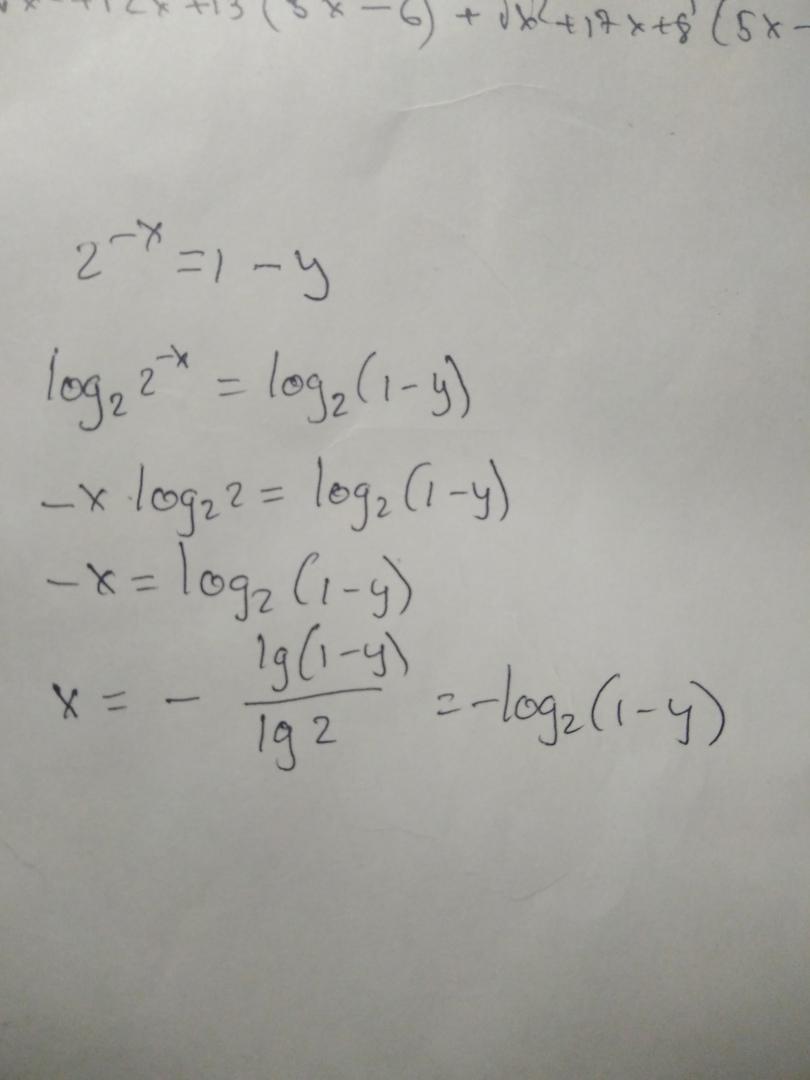 +12x+13 (5x-6) + √x²+17x+8 (5x-
2^{-x} = 1 - y
log₂ 2^{-x} = log₂(1-y)
-x · log₂ 2 = log₂(1-y)
-x = log₂(1-y)
x = - lg(1-y) / lg 2 = -log₂(1-y)